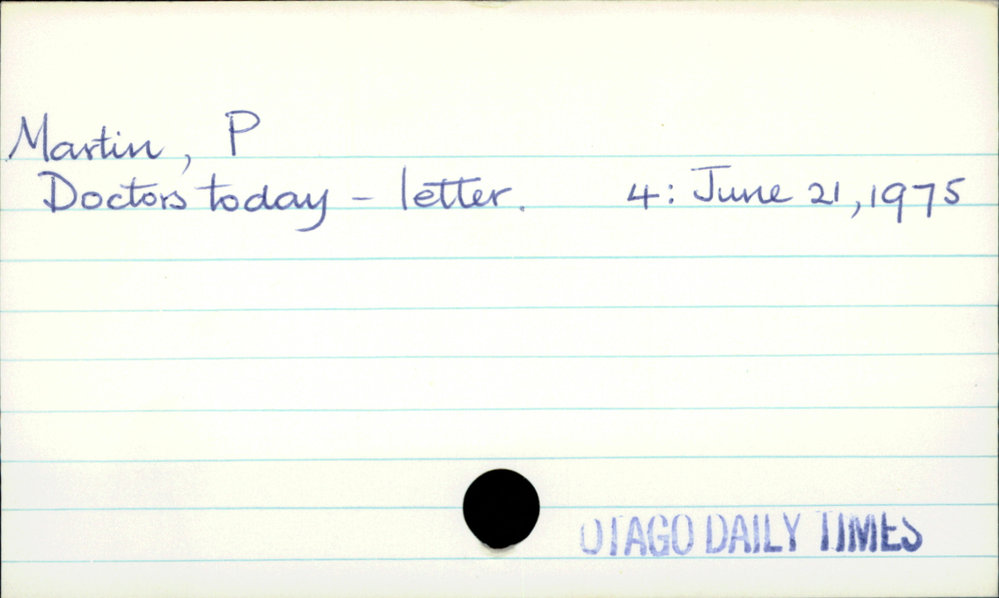 Martin, P
Doctors today - letter. 4: June 21, 1975
OTAGO DAILY TIMES